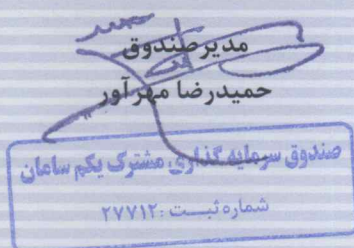 مدیر صندوق
حمیدرضا مهرآور
صندوق سرمایه گذاری مشترک یکم سامان
شماره ثبت: ۲۷۷۱۲